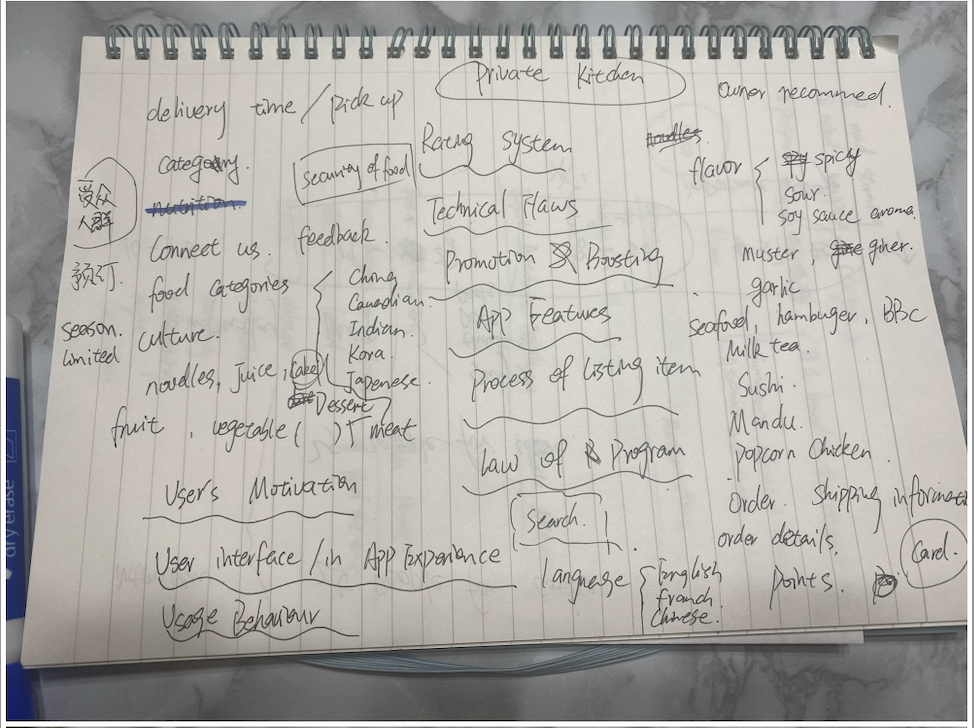 Private Kitchen
delivery time / pick up
Owner recommed.
Rating System
noodles
category.
security of food
flavor { spicy
sour.
soy sauce aroma.
受众
人群
nutrition.
Technical Flaws
Connect us.
feedback.
Promotion & Boosting
muster, giner.
预订.
food categories
China
Canadian.
Indian.
Kora.
Japenese.
garlic
App Features
seafood, hambuger, BBC
season.
limited
culture.
Milk tea.
noodles, juice, Cake
Dessert
Process of listing item
Sushi.
fruit, vegetable ( ) meat
Mandu.
Law of Program
Popcorn Chicken.
User's Motivation
Search.
Order. Shipping informat
order details.
Card.
User interface / in App Experience
language { English
franch.
Chinese.
Points.
Usage Behaviour
dry erase